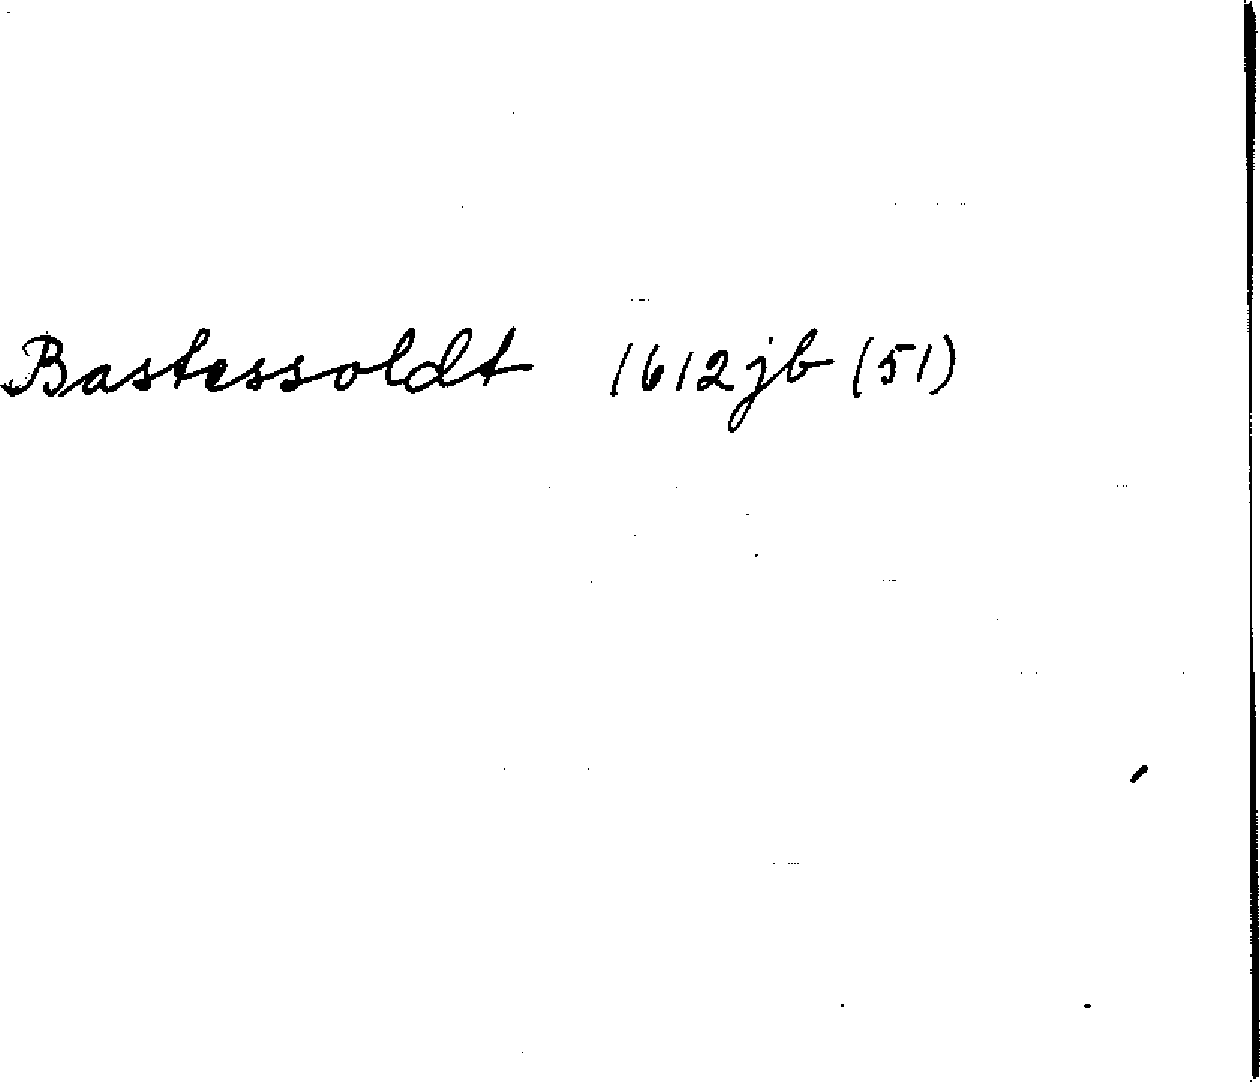 Bastessoldt 1612 jb (51)